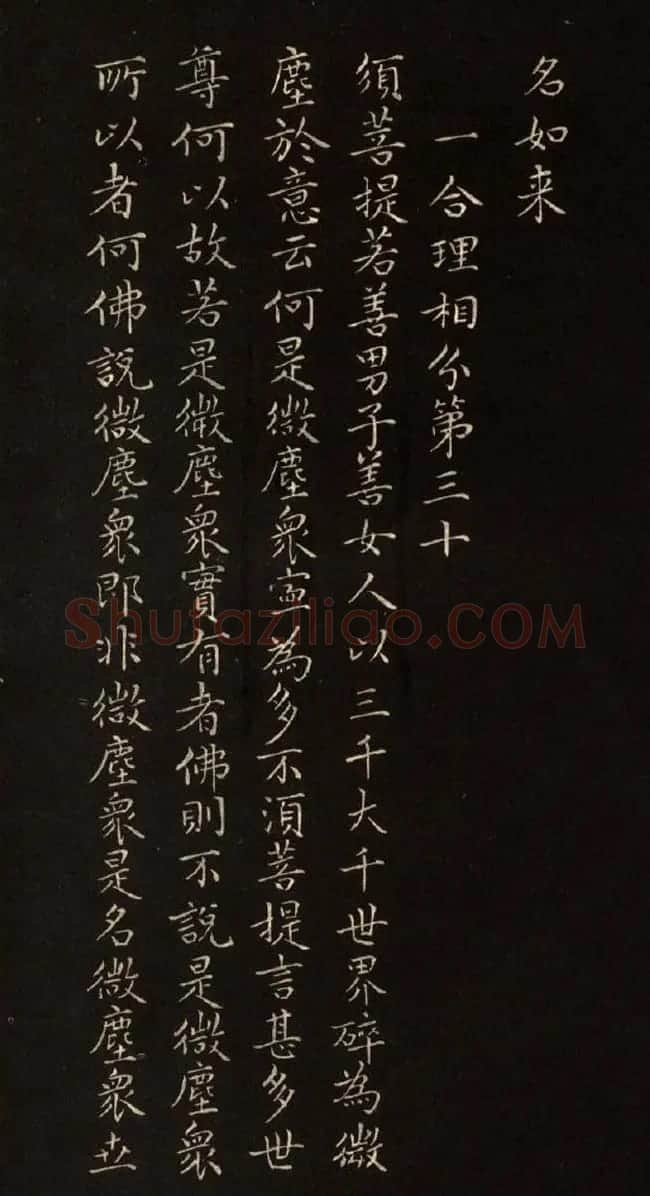 名如来
一合理相分第三十
須菩提若善男子善女人以三千大千世界碎為微
塵於意云何是微塵衆寧為多不須菩提言甚多世
尊何以故若是微塵衆實有者佛則不說是微塵衆
所以者何佛說微塵衆即非微塵衆是名微塵衆世
Shufaziliao.COM